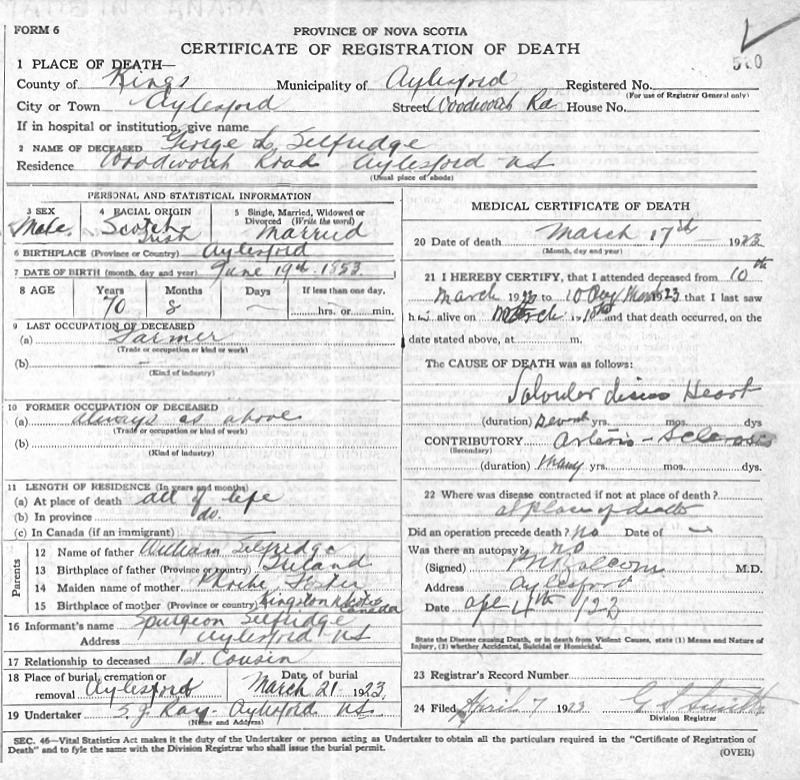 FORM 6
PROVINCE OF NOVA SCOTIA
CERTIFICATE OF REGISTRATION OF DEATH
1 PLACE OF DEATH—
County of Kings Municipality of Aylesford Registered No.
(For use of Registrar General only)
City or Town Aylesford Street Woodworth Rd House No.
If in hospital or institution, give name
2 NAME OF DECEASED George L. Selfridge
Residence Woodworth Road Aylesford NS
(Usual place of abode)
PERSONAL AND STATISTICAL INFORMATION
3 SEX 4 RACIAL ORIGIN 5 Single, Married, Widowed or Divorced (Write the word)
Male Scotch Irish Married
6 BIRTHPLACE (Province or Country) Aylesford
7 DATE OF BIRTH (month, day and year) June 19th 1853
8 AGE Years Months Days If less than one day,
70 8 — hrs. or min.
9 LAST OCCUPATION OF DECEASED
(a) Farmer
(Trade or occupation or kind or work)
(b) —
(Kind of industry)
10 FORMER OCCUPATION OF DECEASED
(a) always as above
(Trade or occupation or kind of work)
(b)
(Kind of industry)
11 LENGTH OF RESIDENCE (In years and months)
(a) At place of death all of life
(b) In province do.
(c) In Canada (if an immigrant)
Parents
12 Name of father William Selfridge
13 Birthplace of father (Province or country) Ireland
14 Maiden name of mother Phoebe Foster
15 Birthplace of mother (Province or country) Kingston N Scotia Canada
16 Informant's name Spurgeon Selfridge
Address Aylesford NS
17 Relationship to deceased 1st. Cousin
18 Place of burial, cremation or removal Aylesford Date of burial March 21 1923
19 Undertaker S. J. Ray - Aylesford NS
(Name and Address)
MEDICAL CERTIFICATE OF DEATH
20 Date of death March 17th 1923
(Month, day and year)
21 I HEREBY CERTIFY, that I attended deceased from 10th
March 1923 to 10 Day 1923 that I last saw
him alive on March 10th and that death occurred, on the
date stated above, at m.
The CAUSE OF DEATH was as follows:
Heart
(duration) yrs. mos. dys
CONTRIBUTORY Arterio-Sclerosis
(Secondary)
(duration) Many yrs. mos. dys.
22 Where was disease contracted if not at place of death?
at place of death
Did an operation precede death? no Date of —
Was there an autopsy? no
(Signed) M.D.
Address Aylesford
Date Apl 4th 123
State the Disease causing Death, or in death from Violent Causes, state (1) Means and Nature of
Injury, (2) whether Accidental, Suicidal or Homicidal.
23 Registrar's Record Number
24 Filed April 7 1923 G S Smith
Division Registrar
SEC. 46—Vital Statistics Act makes it the duty of the Undertaker or person acting as Undertaker to obtain all the particulars required in the "Certificate of Registration of
Death" and to fyle the same with the Division Registrar who shall issue the burial permit.
(OVER)